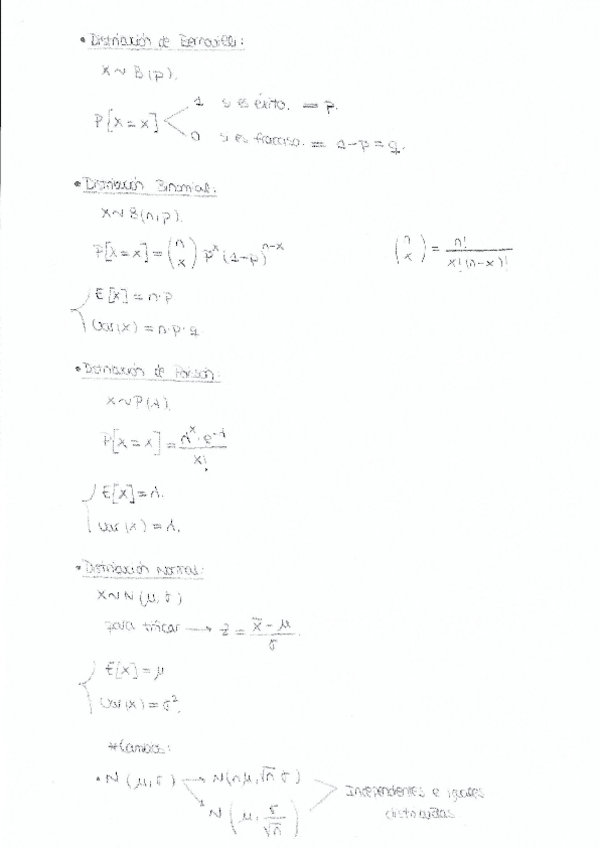 • Distribución de Bernoulli:
X ~ B(p).
P[X = x] < 1 si es éxito. = p.
0 si es fracaso. = 1-p = q.
• Distribución Binomial:
X ~ B(n,p).
P[X = x] = (n x) p^x (1-p)^{n-x}    (n x) = n! / x!(n-x)!
E[X] = n·p
Var(X) = n·p·q
• Distribución de Poisson:
X ~ P(λ).
P[X = x] = λ^x · e^{-λ} / x!
E[X] = λ.
Var(X) = λ.
• Distribución Normal:
X ~ N(μ, σ)
para tificar → Z = x̄ - μ / σ.
E[X] = μ
Var(X) = σ².
*Cambios:
• N(μ, σ) → N(nμ, √n σ)
N(μ, σ/√n)
Independientes e iguales
distribuidas